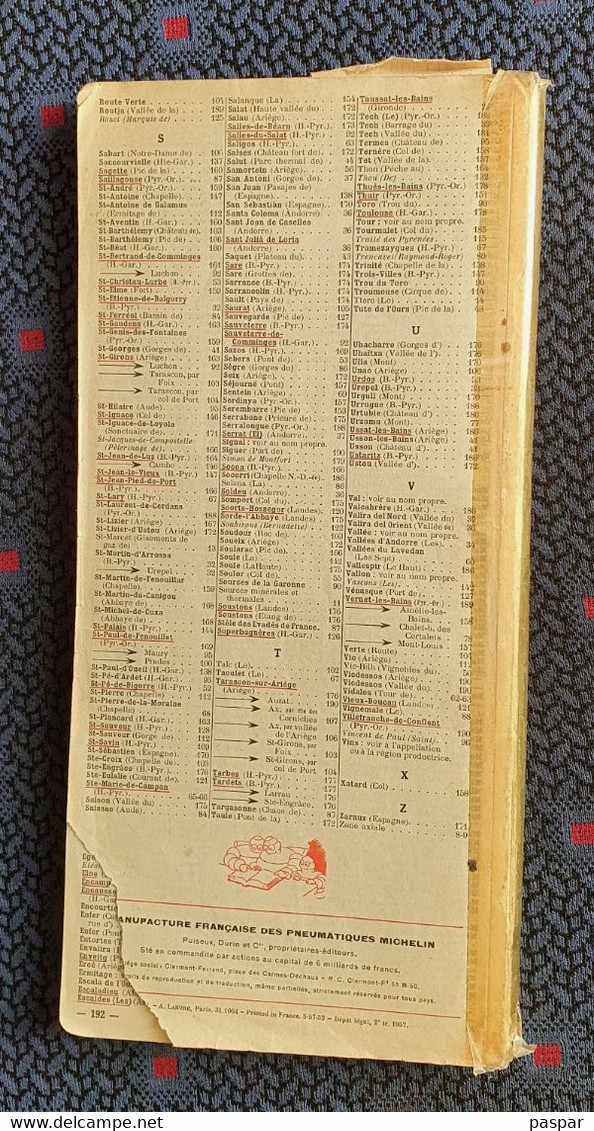 Route Verte 104
Routja (Vallée de la) 189
Rozel (Marquis de) 125
S
Sabart (Notre-Dame de) 106
Saccourvielle (Hte-Gar.) 137
Sagette (Pic de la) 160
Saillagouse (Pyr.-Or.) 87
St-André (Pyr.-Or.) 159
St-Antoine (Chapelle) 147
St-Antoine de Galamus
(Ermitage de) 112
St-Aventin (H.-Gar.) 160
St-Barthélemy (Château de) 103
St-Barthélemy (Pic de) 106
St-Béat (H.-Gar.) 160
St-Bertrand-de-Comminges
(H.-Gar.) 161
Luchon 92
St-Christau-Lurbe (B.-Pyr.) 53
St-Elme (Fort) 159
St-Etienne-de-Baïgorry
(B.-Pyr.) 32
St-Ferréol (Bassin de) 84
St-Gaudens (H.-Gar.) 163
St-Genis-des-Fontaines
(Pyr.-Or.) 159
St-Georges (Gorges de) 41
St-Girons (Ariège) 163
Luchon 92
Tarascon, par
Foix 103
Tarascon, par
col de Port 104
St-Hilaire (Aude) 95
St-Ignace (Col de) 146
St-Ignace-de-Loyola
(Sanctuaire de) 171
St-Jacques-de-Compostelle
(Pèlerinage de)
St-Jean-de-Luz (B.-Pyr.) 164
Cambo 146
St-Jean-le-Vieux (B.-Pyr.) 147
St-Jean-Pied-de-Port
(B.-Pyr.) 166
St-Lary (H.-Pyr.) 67
St-Laurent-de-Cerdans
(Pyr.-Or.) 188
St-Lizier (Ariège) 167
St-Lizier-d'Ustou (Ariège) 172
St-Marcet (Gisements de
gaz de) 13
St-Martin-d'Arrossa
(B.-Pyr.) 32
Urepel 32
St-Martin-de-Fenouillar
(Chapelle) 159
St-Martin-du-Canigou
(Abbaye de) 168
St-Michel-de-Cuxa
(Abbaye de) 168
St-Palais (B.-Pyr.)
St-Paul-de-Fenouillet
(Pyr.-Or.) 169
Maury 95
Prades 100
St-Paul-d'Oueil (H.-Gar.) 138
St-Pé-d'Ardet (H.-Gar.) 93
St-Pé-de-Bigorre (H.-Pyr.) 52
St-Pierre (Chapelle) 112
St-Pierre-de-la-Moraine
(Chapelle)
St-Plancard (H.-Gar.) 68
St-Sauveur (H.-Pyr.) 128
St-Sauveur (Gorge de) 112
St-Savin (H.-Pyr.) 169
St-Sébastien (Espagne) 170
Ste-Croix (Chapelle de) 103
Ste-Engrâce (B.-Pyr.) 176
Ste-Eulalie (Courant de) 121
Ste-Marie-de-Campan
(H.-Pyr.) 65-66
Saison (Vallée du) 175
Saissac (Aude) 84
Salanque (La) 154
Salat (Haute vallée du) 172
Salau (Ariège) 172
Salies-de-Béarn (B.-Pyr.) 173
Salies-du-Salat (H.-Gar.) 173
Saligos (H.-Pyr.) 92
Salses (Château fort de) 172
Salut (Parc thermal de) 44
Samortein (Ariège) 56
San Antoni (Gorges de) 37
San Juan (Pasajes de)
(Espagne) 138
San Sebastián (Espagne) 170
Santa Coloma (Andorre) 36
Sant Joan de Caselles
(Andorre) 36
Sant Julià de Loria
(Andorre) 36
Saquet (Plateau du) 43
Sare (B.-Pyr.) 173
Sare (Grottes de) 174
Sarrance (B.-Pyr.) 174
Sarrancolin (H.-Pyr.) 174
Sault (Pays de) 174
Saurat (Ariège) 105
Sauvegarde (Pic de) 127
Sauveterre (B.-Pyr.) 174
Sauveterre-de-
Comminges (H.-Gar.) 92
Sazos (H.-Pyr.) 169
Scherz (Pont del) 43
Sègre (Gorges du) 86
Seix (Ariège) 172
Séjourné (Pont) 157
Sentein (Ariège) 69
Serdinya (Pyr.-Or.) 157
Serembarre (Pic de) 153
Serrabone (Prieuré de) 175
Serralongue (Pyr.-Or.) 188
Serrat (El) (Andorre) 37
Signal : voir au nom propre.
Siguer (Port de) 190
Simon de Montfort 179
Socoa (B.-Pyr.) 166
Socorri (Chapelle N.-D. de) 186
Solana (La) 86
Soldeu (Andorre) 36
Somport (Col du) 175
Soorts-Hossegor (Landes) 120
Sorde-l'Abbaye (Landes) 175
Soubirous (Bernadette) 122
Soudour (Roc de) 103
Soueix (Ariège) 172
Soularac (Pic de) 103
Soule (Le) 142
Soule (La Haute) 175
Soulor (Col de) 55
Sources de la Garonne 90
Sources minérales et
thermales 11
Soustons (Landes) 176
Soustons (Étang de) 176
Stèle des Évadés de France 87
Superbagnères (H.-Gar.) 126
T
Talc (Le) 102
Taoulet (Le) 67
Tarascon-sur-Ariège
(Ariège) 176
Auzat 190
Ax, par rte des
Corniches 107
Ax, par vallée
de l'Ariège 106
St-Girons, par
Foix 163
St-Girons, par
col de Port 104
Tarbes (H.-Pyr.) 177
Tardets (B.-Pyr.) 177
Larrau 176
Ste-Engrâce 176
Targasonne (Chaos de) 87
Taule (Pont de la) 172
Taussat-les-Bains
(Gironde)
Tech (Le) (Pyr.-Or.)
Tech (Barrage du) 89
Tech (Vallée du)
Termes (Château de) 95
Ternère (Col de)
Tet (Vallée de la) 157
Thou (Pêche au) 164
Thou (De) 132
Thuès-les-Bains (Pyr.-Or.) 178
Thuir (Pyr.-Or.) 151
Toro (Trou du) 90
Toulouse (H.-Gar.) 178
Tour : voir au nom propre.
Tourmalet (Col du) 185
Traité des Pyrénées 115
Tramezaygues (H.-Pyr.) 67
Trencavel (Raymond-Roger) 80
Trinité (Chapelle de la)
Trois-Villes (B.-Pyr.) 147
Trou du Toro 90
Troumouse (Cirque de)
Ttoro (Le) 14
Tute de l'Ours (Pic de la) 43
U
Uhacharre (Gorges d') 176
Uhaïtxa (Vallée de l') 176
Ulia (Mont) 170
Unac (Ariège) 106
Urdos (B.-Pyr.) 53
Urepel (B.-Pyr.) 32
Urgull (Mont) 170
Urrugne (B.-Pyr.) 186
Urtubie (Château d') 186
Urzumu (Mont) 77
Ussat-les-Bains (Ariège) 186
Usson-les-Bains (Ariège) 41
Usson (Château d') 41
Ustaritz (B.-Pyr.) 186
Ustou (Vallée d') 172
V
Val : voir au nom propre.
Valcabrère (H.-Gar.)
Valira del Nord (Vallée du) 37
Valira del Orient (Vallée du) 36
Vallée : voir au nom propre.
Vallées d'Andorre (Les) 34
Vallées du Lavedan
(Les Sept)
Vallespir (Le Haut) 186
Vallon : voir au nom propre.
Vascons (Les)
Vénasque (Port de) 127
Vernet-les-Bains (Pyr.-Or.) 189
Amélie-les-
Bains 158
Chalet-h. des
Cortalets 78
Mont-Louis 157
Verte (Route)
Vic (Ariège)
Vic-Bilh (Vignobles du) 56
Vicdessos (Ariège) 190
Vicdessos (Vallée du) 190
Vidalos (Tour de) 62-63
Vieux-Boucau (Landes) 121
Vignemale (Le) 88
Villefranche-de-Conflent
(Pyr.-Or.) 190
Vincent de Paul (Saint) 96
Vins : voir à l'appellation
ou à la région productrice.
X
Xatard (Col) 158
Z
Zarauz (Espagne) 171
Zone axiale 8-9
MANUFACTURE FRANÇAISE DES PNEUMATIQUES MICHELIN
Puiseux, Durin et Cie, propriétaires-éditeurs.
Sté en commandite par actions au capital de 6 milliards de francs.
siège social : Clermont-Ferrand, place des Carmes-Déchaux - R. C. Clermont-Fd 55 B-50.
droits de reproduction et de traduction, même partielles, strictement réservés pour tous pays.
A. LAHURE, Paris, 31.1004 - Printed in France. 5-57-52 - Dépôt légal, 2e tr. 1957.
Encamp
Encausse
(H.-Ga
Encourtie
Enfer (Ca
rue d')
Enfer (Pon
Entortes (
Envalira (
Enveitg (
Ercé (Ariè
Ermitage :
Escala de l'O
Escaladieu (A
Escaldes (Les) (A
— 192 —
paspar